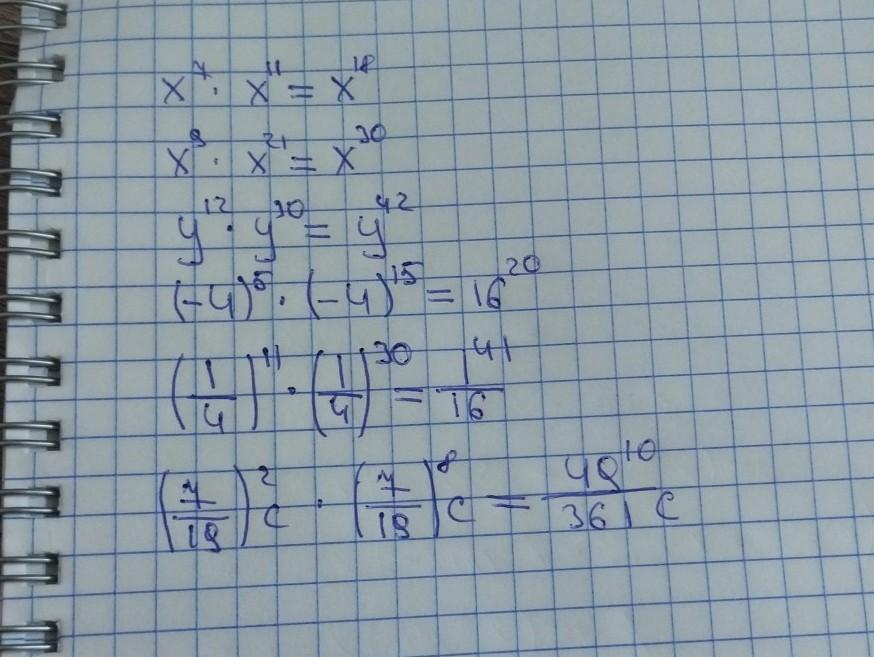 x⁷ · x¹¹ = x¹⁸
x⁹ · x²¹ = x³⁰
y¹² · y³⁰ = y⁴²
(-4)⁵ · (-4)¹⁵ = 16²⁰
(1/4)¹¹ · (1/4)³⁰ = 1⁴¹/16
(7/19)² c · (7/19)⁸ c = 49¹⁰/361 c